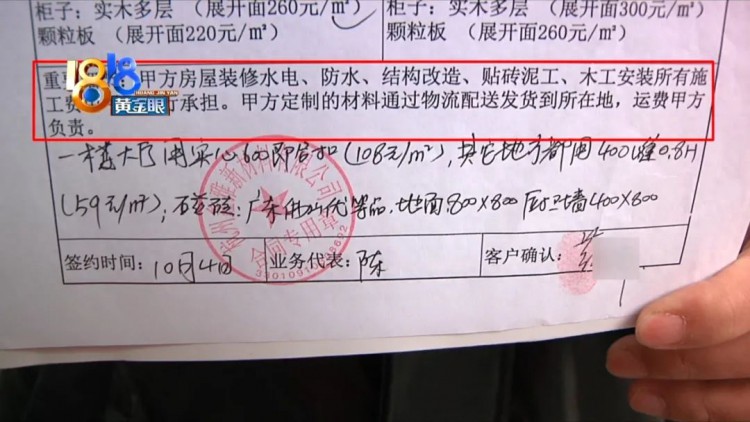 柜子：实木多层（展开面260元/㎡） 柜子：实木多层（展开面300元/㎡）
颗粒板（展开面220元/㎡） 颗粒板（展开面260元/㎡）
1818
HUANG JIN YAN
黄金眼
重 甲方房屋装修水电、防水、结构改造、贴砖泥工、木工安装所有施
工费 行承担。甲方定制的材料通过物流配送发货到所在地，运费甲方
负责。
一楼大厅用实心600即合扣（108元/m²），其它地方都用400 0.8H
（59元/m²）；瓷砖：广东 代等品，地面800×800 厨卫墙400×800
合同专用章
签约时间： 10月4日 业务代表： 陈 客户确认：